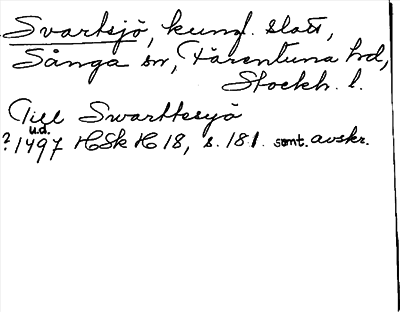 Svartsjö, kungl. slott,
Sånga sn, Färentuna hd,
Stockh. l.
Till Swarttesyö
u.d.
? 1497 HSk H 18, s. 181. samt. avskr.